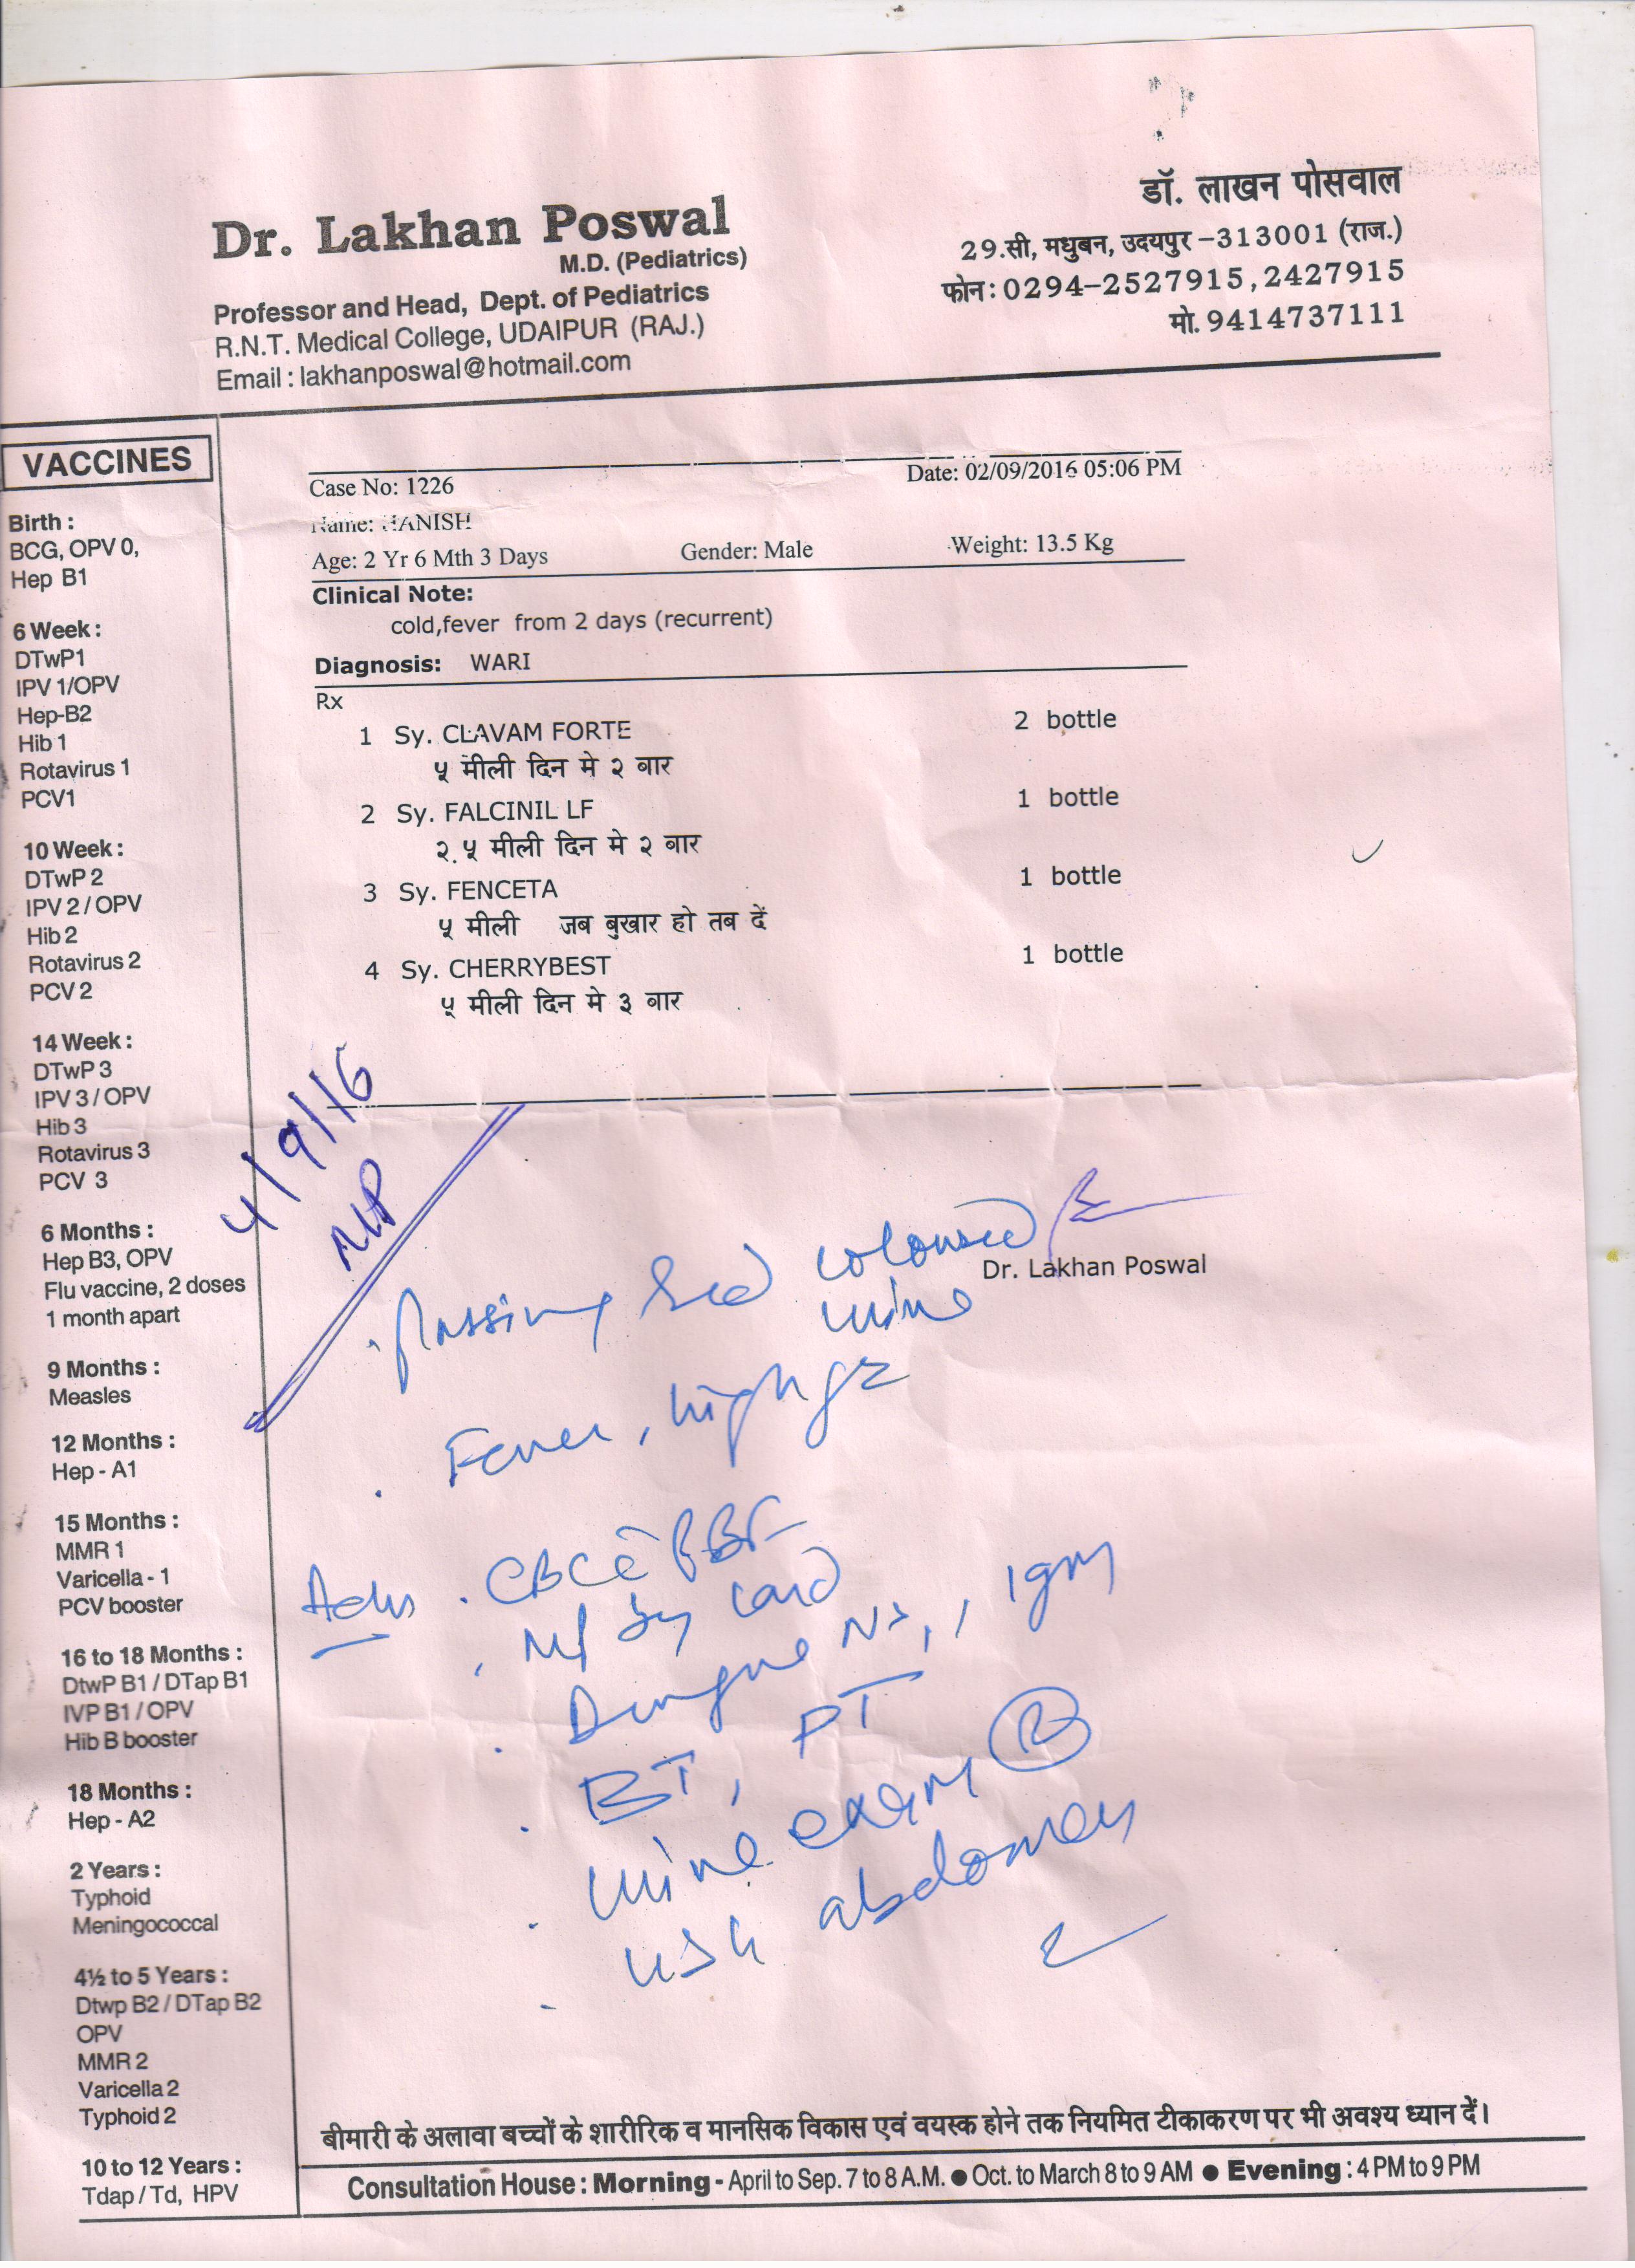 Dr. Lakhan Poswal
M.D. (Pediatrics)
Professor and Head, Dept. of Pediatrics
R.N.T. Medical College, UDAIPUR (RAJ.)
Email : lakhanposwal@hotmail.com
डॉ. लाखन पोसवाल
29.सी, मधुबन, उदयपुर -313001 (राज.)
फोन: 0294-2527915, 2427915
मो. 9414737111
VACCINES
Birth :
BCG, OPV 0,
Hep B1
6 Week :
DTwP1
IPV 1/OPV
Hep-B2
Hib 1
Rotavirus 1
PCV1
10 Week :
DTwP 2
IPV 2 / OPV
Hib 2
Rotavirus 2
PCV 2
14 Week :
DTwP 3
IPV 3 / OPV
Hib 3
Rotavirus 3
PCV 3
6 Months :
Hep B3, OPV
Flu vaccine, 2 doses
1 month apart
9 Months :
Measles
12 Months :
Hep - A1
15 Months :
MMR 1
Varicella - 1
PCV booster
16 to 18 Months :
DtwP B1 / DTap B1
IVP B1 / OPV
Hib B booster
18 Months :
Hep - A2
2 Years :
Typhoid
Meningococcal
4½ to 5 Years :
Dtwp B2 / DTap B2
OPV
MMR 2
Varicella 2
Typhoid 2
10 to 12 Years :
Tdap / Td, HPV
Case No: 1226 Date: 02/09/2016 05:06 PM
Name: HANISH
Age: 2 Yr 6 Mth 3 Days Gender: Male Weight: 13.5 Kg
Clinical Note:
cold,fever from 2 days (recurrent)
Diagnosis: WARI
Rx
1 Sy. CLAVAM FORTE 2 bottle
५ मीली दिन मे २ बार
2 Sy. FALCINIL LF 1 bottle
२.५ मीली दिन मे २ बार
3 Sy. FENCETA 1 bottle
५ मीली जब बुखार हो तब दें
4 Sy. CHERRYBEST 1 bottle
५ मीली दिन मे ३ बार
4/9/16
Dr. Lakhan Poswal
. Passing Red coloured
urine
. Fever, high gr
Adv . CBC c̄ PBF
. MP by card
. Dengue NS1, IgM
. BT, PT
. urine exam (R)
. USG abdomen
बीमारी के अलावा बच्चों के शारीरिक व मानसिक विकास एवं वयस्क होने तक नियमित टीकाकरण पर भी अवश्य ध्यान दें।
Consultation House : Morning - April to Sep. 7 to 8 A.M. ● Oct. to March 8 to 9 AM ● Evening : 4 PM to 9 PM